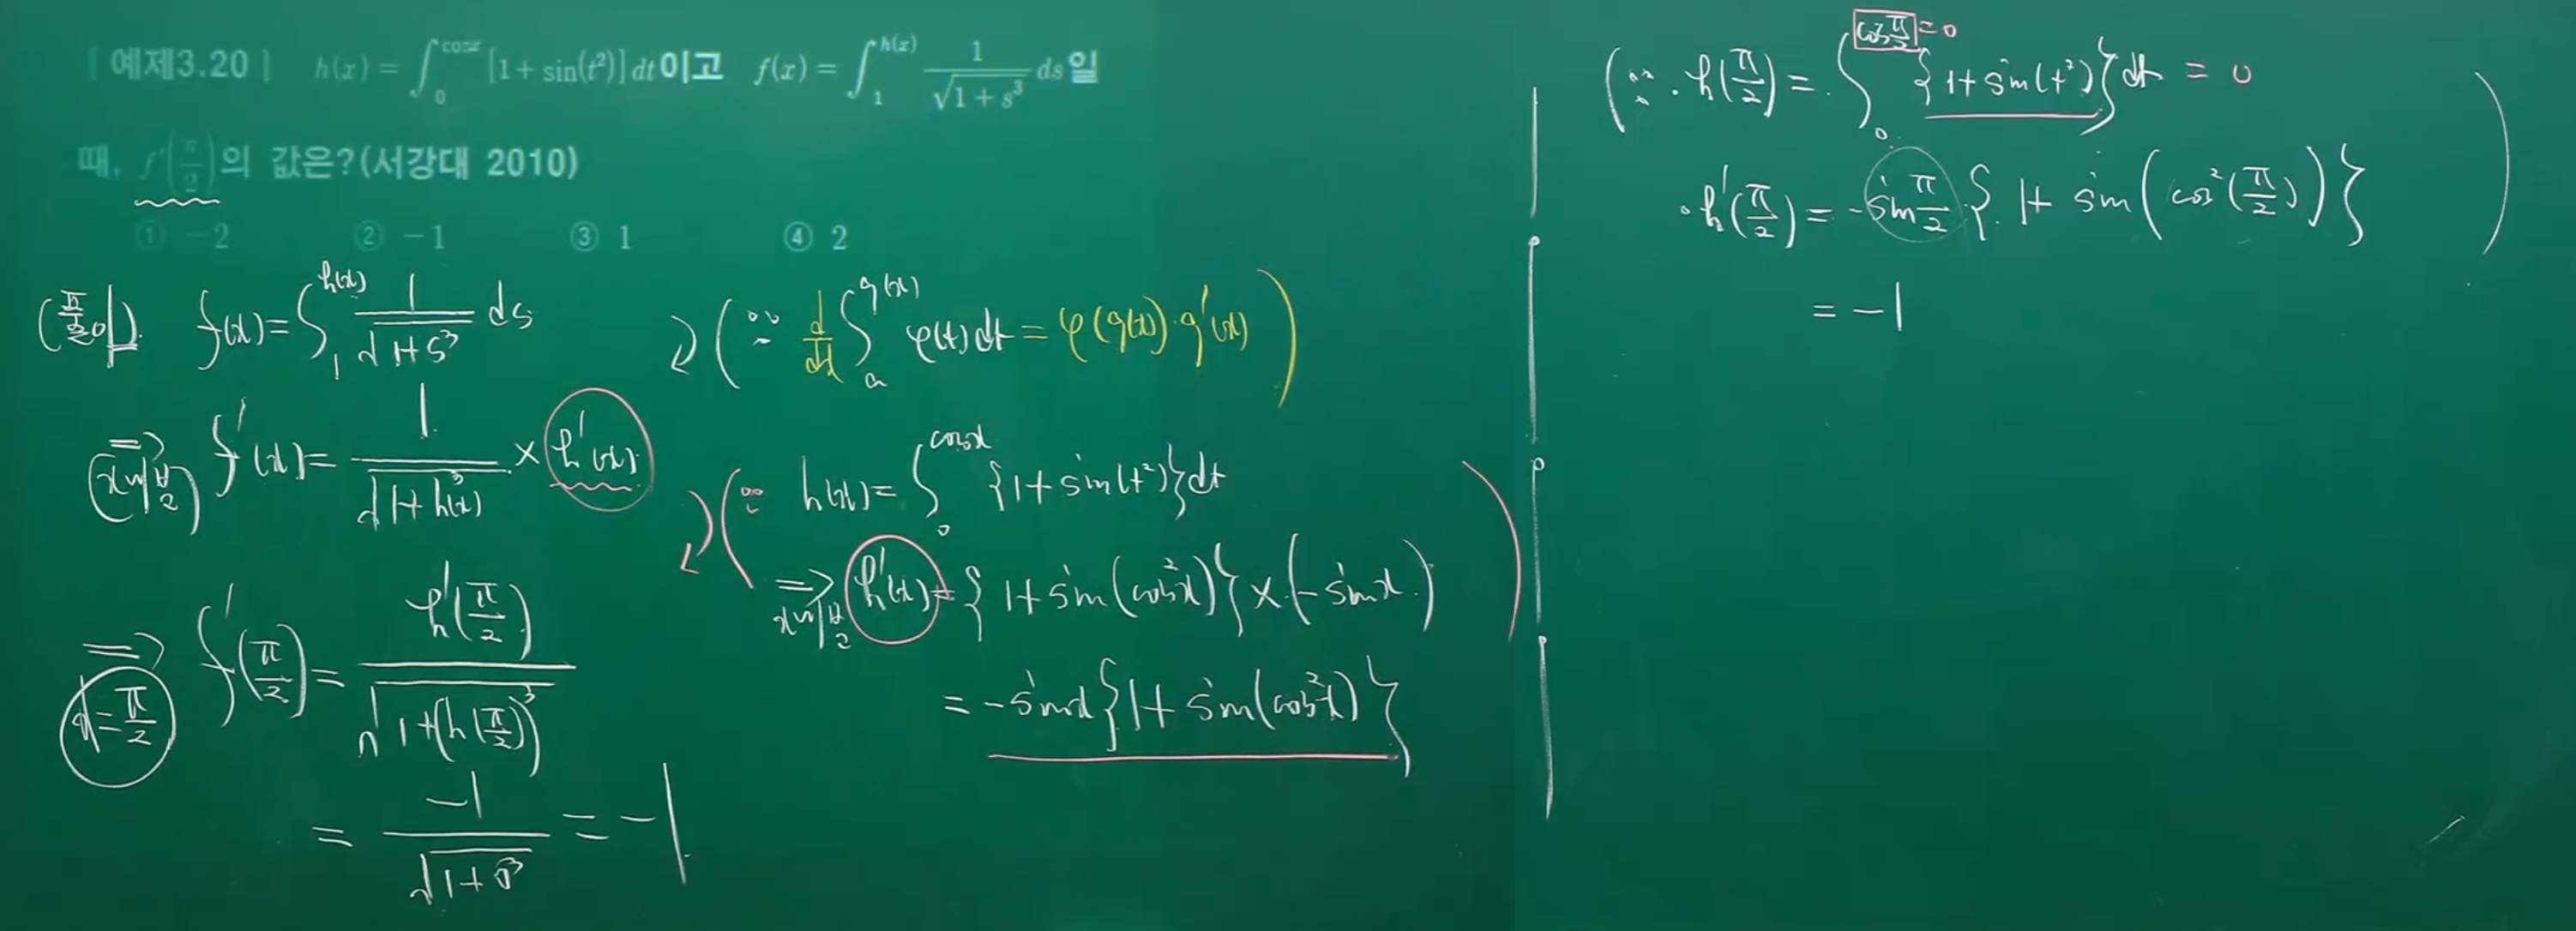 [ 예제3.20 ] h(x) = ∫₀^{cosx} [1 + sin(t²)] dt이고 f(x) = ∫₁^{h(x)} 1/√(1+s³) ds일
때, f′(π/2)의 값은?(서강대 2010)
① −2 ② −1 ③ 1 ④ 2
f(x) = ∫₁^{h(x)} 1/√(1+s³) ds
⇒ f′(x) = 1/√(1+h³(x)) × h′(x)
⇒ x=π/2 f′(π/2) = h′(π/2)/√(1+(h(π/2))³)
= −1/√(1+0³) = −1
(∵ d/dx ∫ₐ^{g(x)} φ(t)dt = φ(g(x))·g′(x))
(∵ h(x) = ∫₀^{cosx} {1+sin(t²)}dt
⇒ h′(x) = {1+sin(cos²x)} × (−sinx)
= −sinx{1+sin(cos²x)}
cos π/2 = 0
(∵ · h(π/2) = ∫₀ {1+sin(t²)}dt = 0
· h′(π/2) = −sin π/2 {1+sin(cos²(π/2))}
= −1